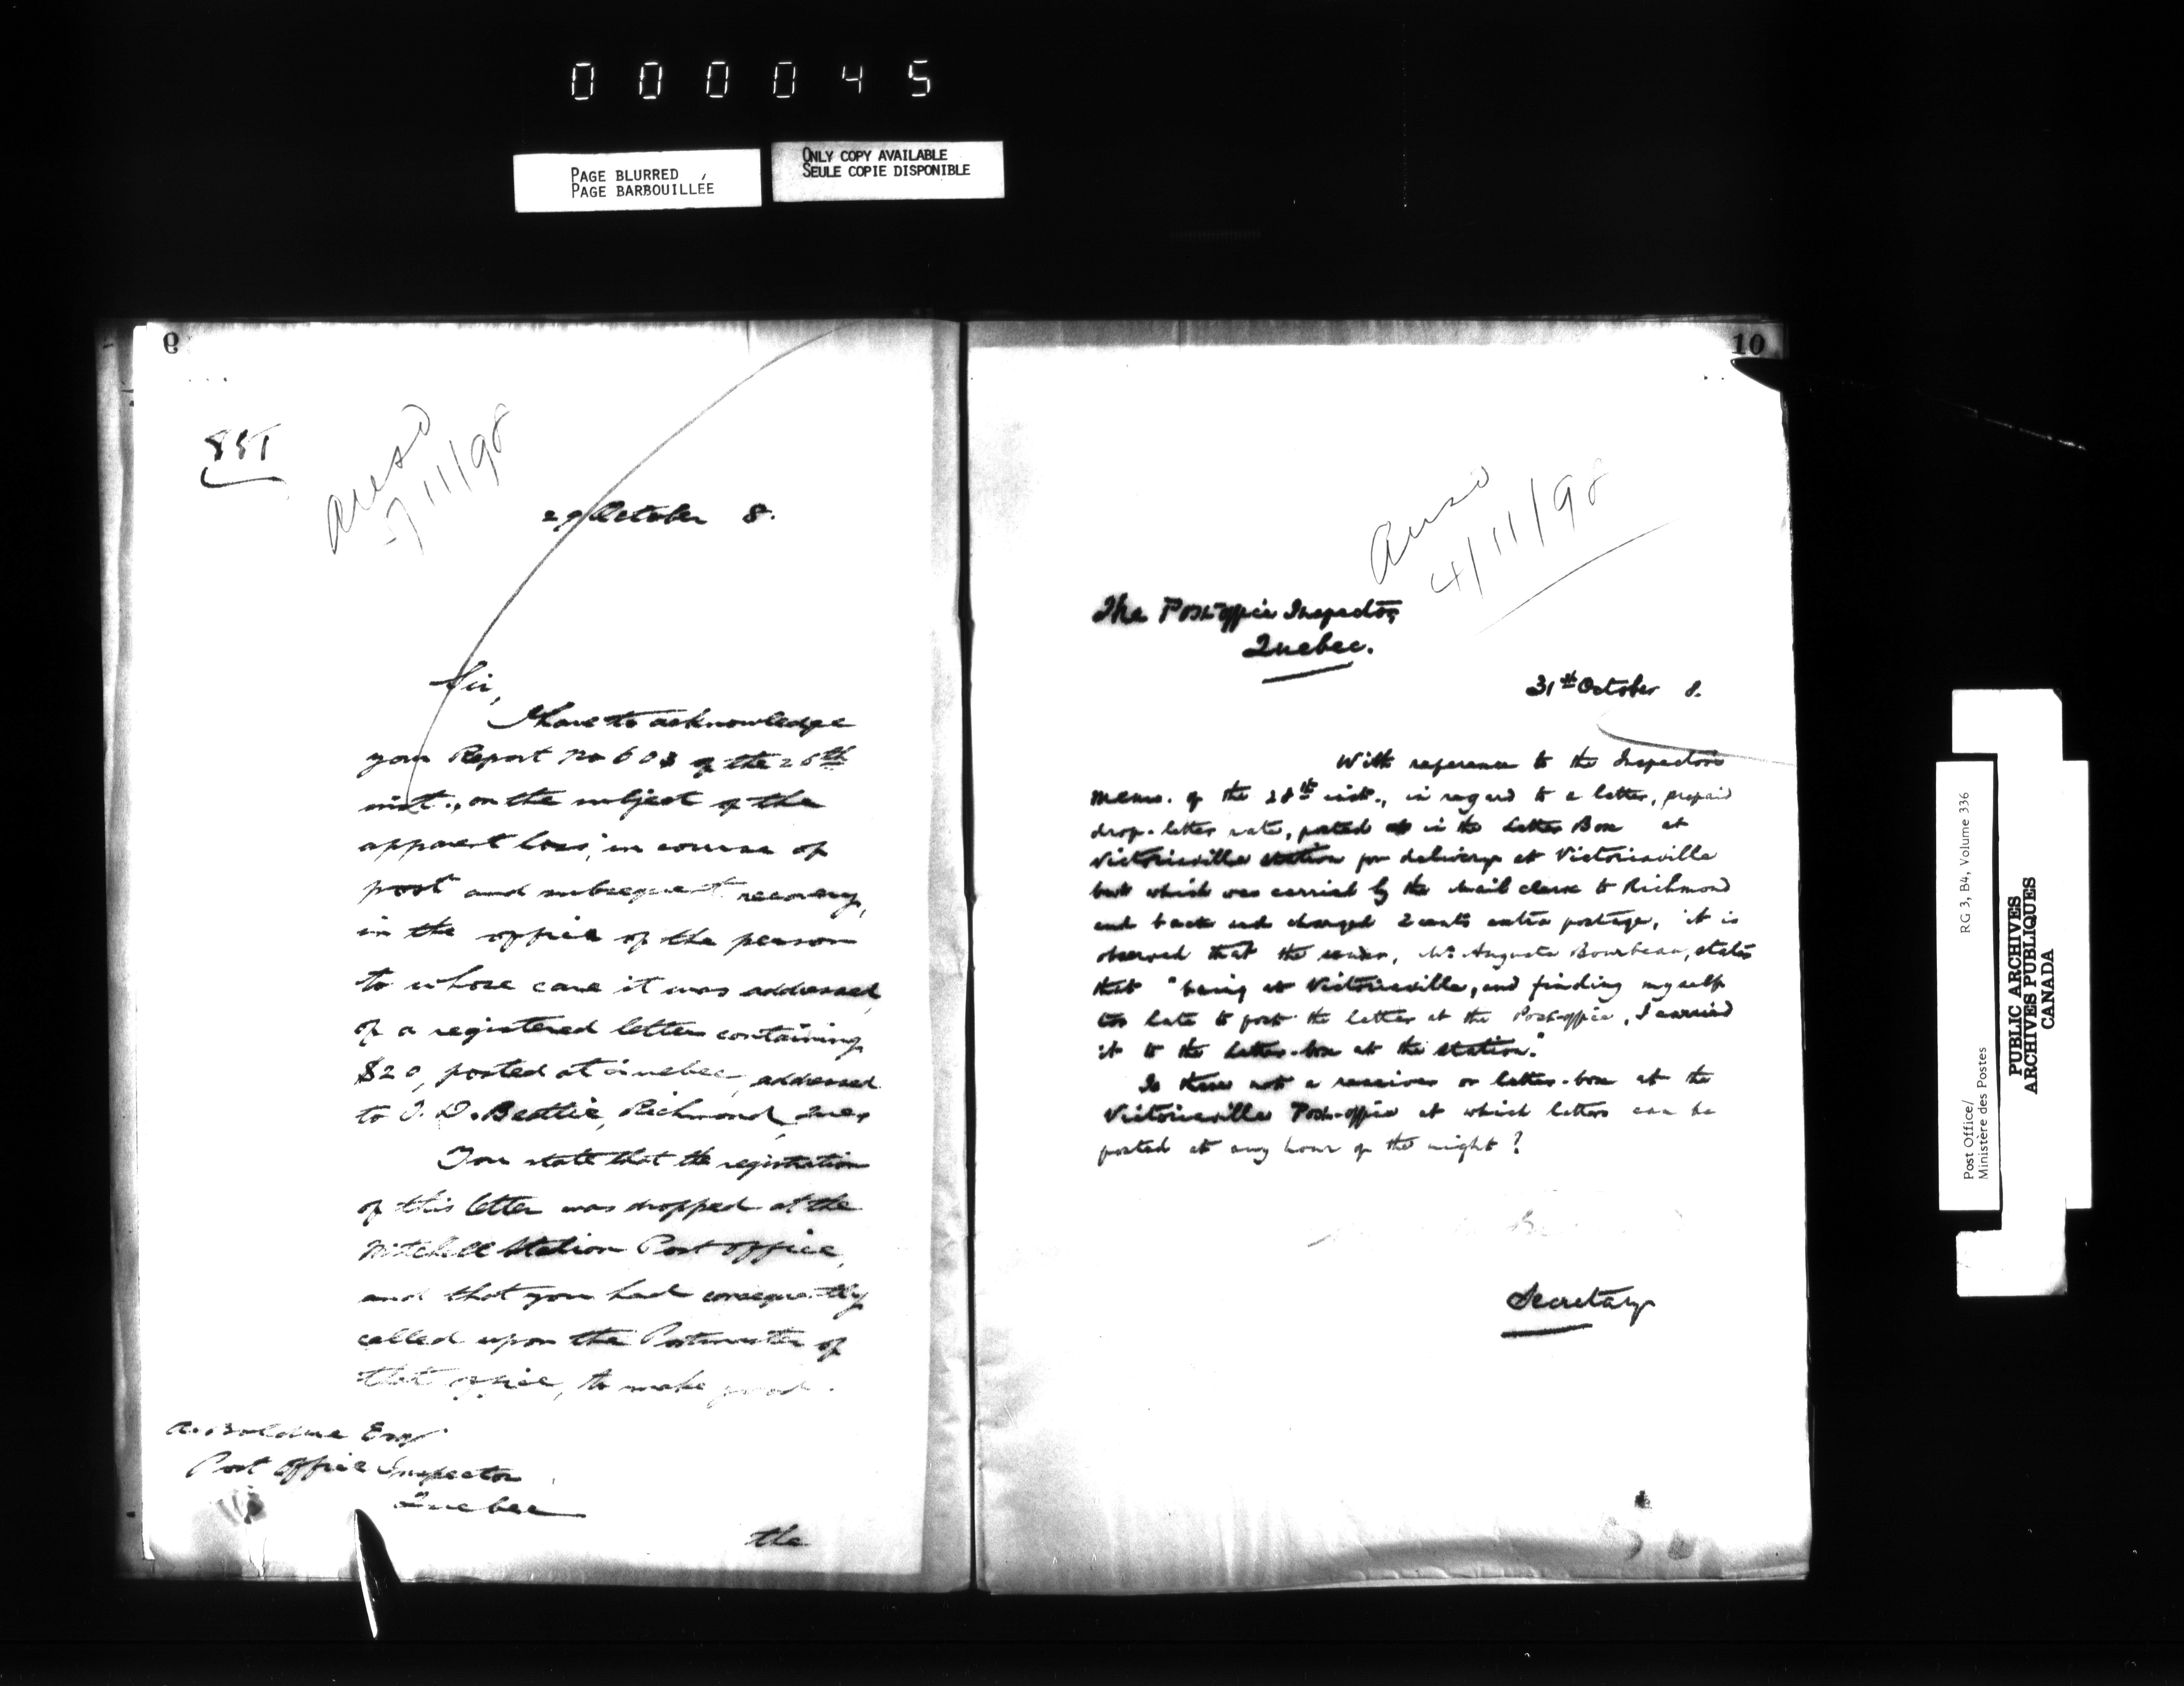 000045
PAGE BLURRED
PAGE BARBOUILLÉE
ONLY COPY AVAILABLE
SEULE COPIE DISPONIBLE
9
7/11/98
29 October 8.
Sir,
I have to acknowledge
your Report No 603 of the 26th
inst., on the subject of the
apparent loss, in course of
post and subsequent recovery,
in the office of the person
to whose care it was addressed,
of a registered letter containing
$20, posted at Quebec, addressed
to J. D. Beattie, Richmond, Que
You state that the registration
of this letter was dropped at the
Mitchell Station Post Office,
and that you had consequently
called upon the Postmaster of
that office, to make good
A. Bolduc Esq
Post Office Inspector
Quebec
the
10
4/11/98
The Post-office Inspector,
Quebec.
31st October 8.
With reference to the Inspector's
memo. of the 28th inst., in regard to a letter, prepaid
drop-letter rate, posted in the Letter Box at
Victoriaville station for delivery at Victoriaville
but which was carried by the mail clerk to Richmond
and back and charged 2 cents extra postage, it is
observed that the sender, Mr Auguste Bourbeau, states
that "being at Victoriaville, and finding myself
too late to post the letter at the Post-office, I carried
it to the letter-box at the station."
Is there not a receiver or letter-box at the
Victoriaville Post-office at which letters can be
posted at any hour of the night?
Secretary
Post Office/
Ministère des Postes
RG 3, B4, Volume 336
PUBLIC ARCHIVES
ARCHIVES PUBLIQUES
CANADA